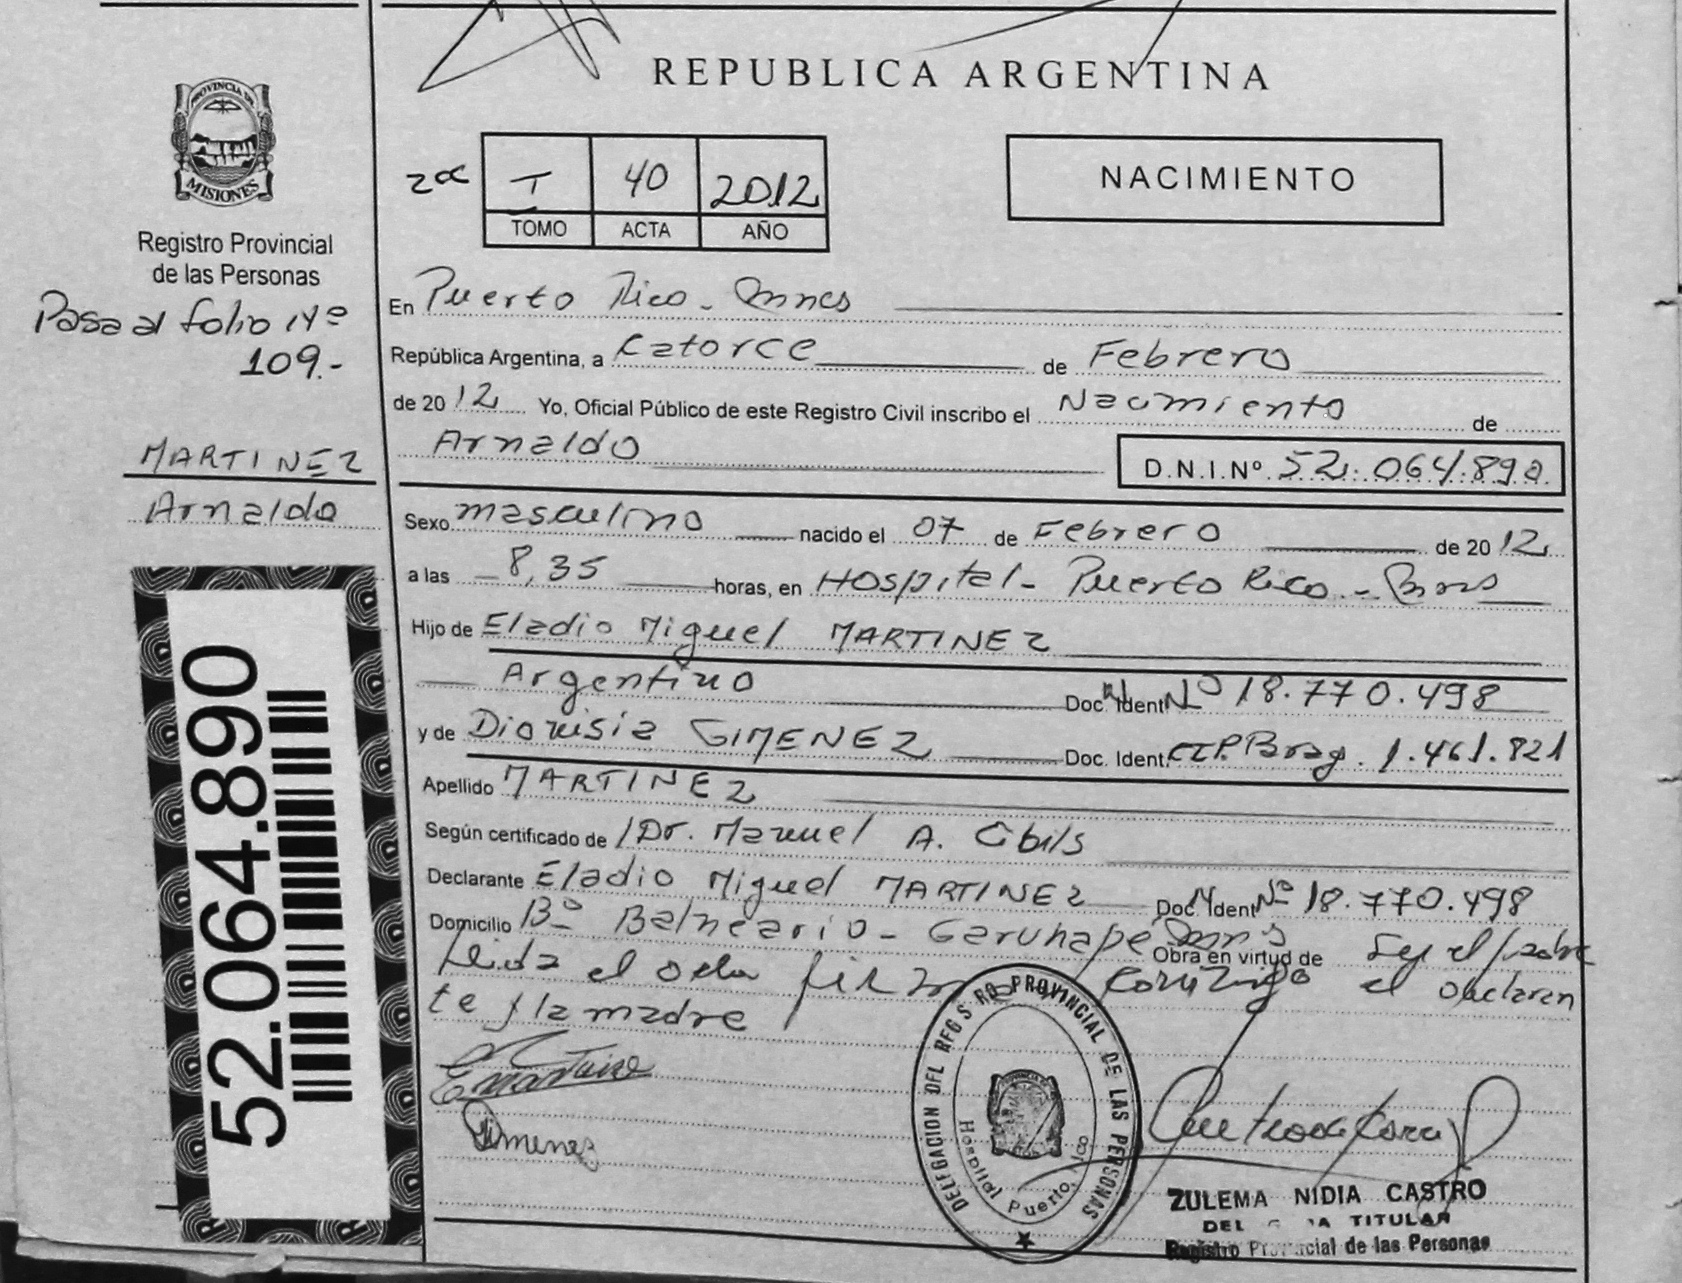 REPUBLICA ARGENTINA
PROVINCIA DE
MISIONES
Registro Provincial
de las Personas
Pasa al folio Nº
109.-
MARTINEZ
Arnaldo
52.064.890
I 40 2012
TOMO ACTA AÑO
NACIMIENTO
En Puerto Rico - Mnes
República Argentina, a Catorce de Febrero
de 2012 Yo, Oficial Público de este Registro Civil inscribo el Nacimiento de
Arnaldo D.N.I.Nº. 52.064.890
Sexo masculino nacido el 07 de Febrero de 2012
a las 8,35 horas, en Hospital - Puerto Rico - Mnes
Hijo de Eladio Miguel MARTINEZ
Argentino Doc. Ident. Nº 18.770.498
y de Dionisia GIMENEZ Doc. Ident. 1.461.821
Apellido MARTINEZ
Según certificado de Dr. Manuel A. Cibils
Declarante Eladio Miguel MARTINEZ Doc. Ident. Nº 18.770.498
Domicilio Bº Balneario - Garuhapé Mnes
Obra en virtud de
Leida el acta firman conmigo el declaran
te y la madre
Gimenez
DELEGACION DEL REGISTRO PROVINCIAL DE LAS PERSONAS
Hospital Puerto Rico
ZULEMA NIDIA CASTRO
TITULAR
Registro Provincial de las Personas